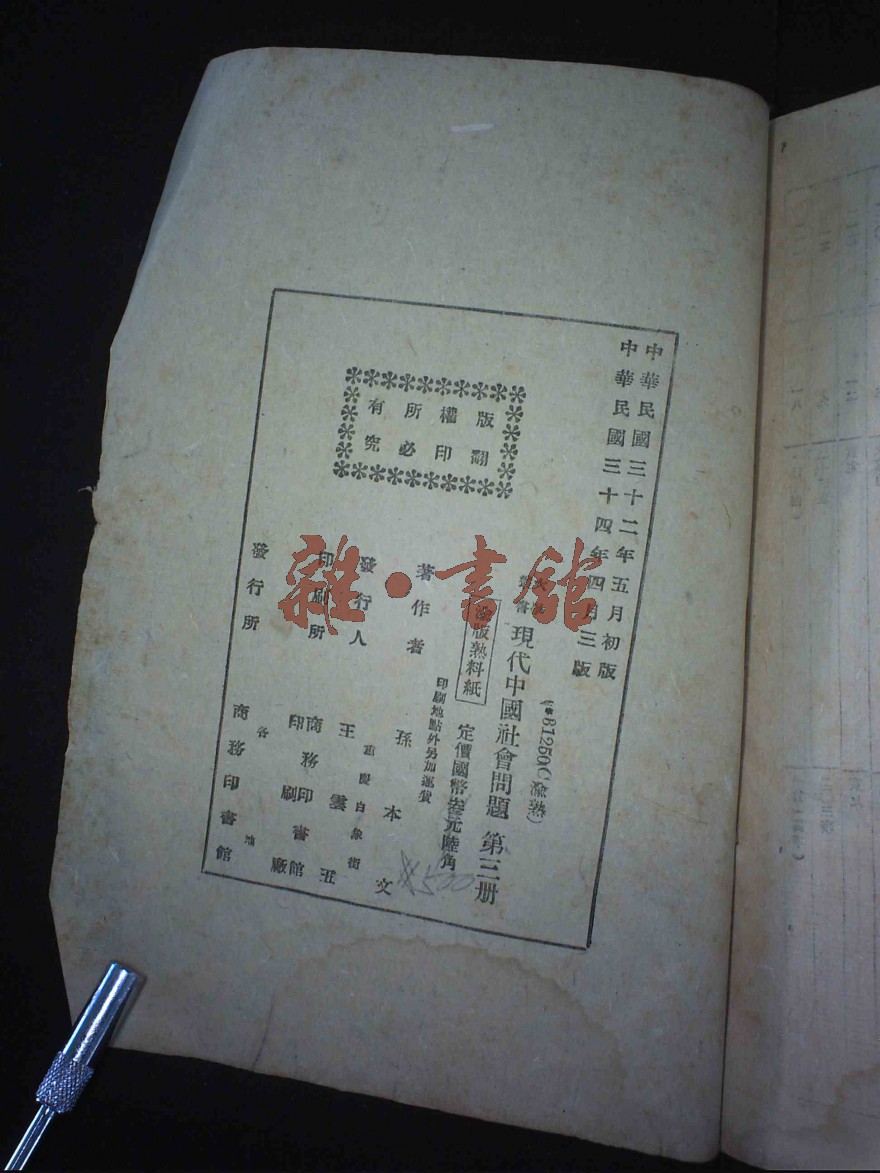 中華民國三十二年五月初版
中華民國三十四年四月三版
81250(渝熟)
現代中國社會問題 第三册
渝版熟料紙
定價國幣叁元陸角
印刷地點外另加運費
$500
著作者 孫本文
重慶白象街
發行人 王雲五
印刷所 商務印書館
印刷廠
各地
發行所 商務印書館
版權所有
翻印必究
雜·書館